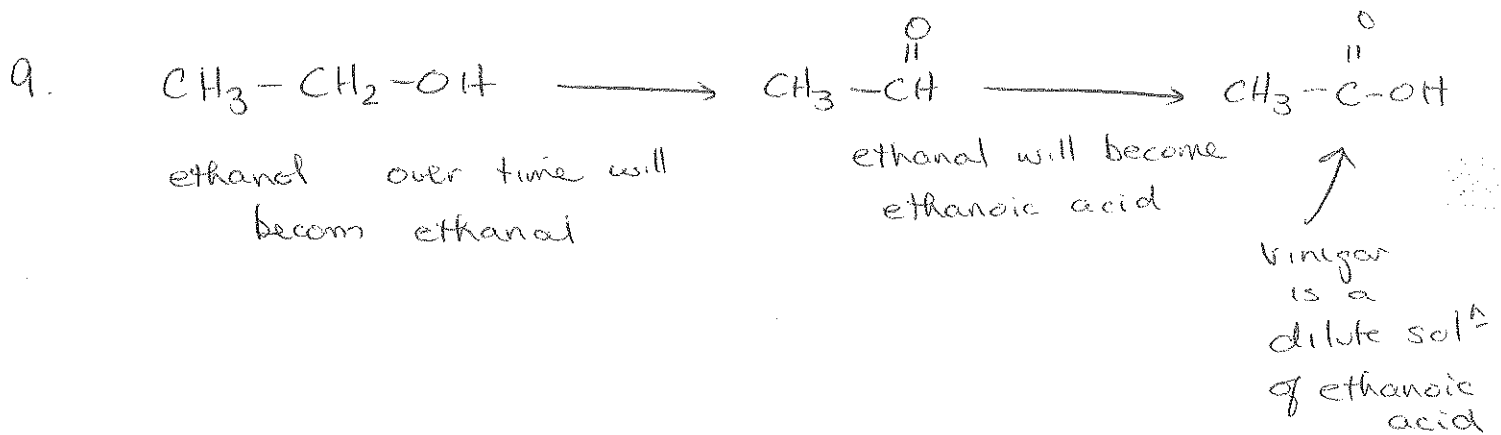 9. CH₃-CH₂-OH ⟶ CH₃-CH ⟶ CH₃-C-OH
O
||
O
||
ethanol over time will
becom ethanal
ethanal will become
ethanoic acid
Vinegar
is a
dilute solⁿ
of ethanoic
acid